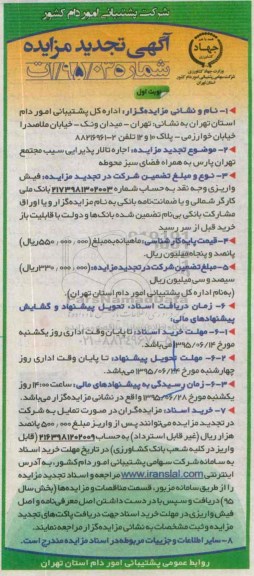 شرکت پشتیبانی امور دام کشور
جهاد
وزارت جهاد کشاورزی
شرکت سهامی پشتیبانی امور دام کشور
استان تهران
آگهی تجدید مزایده
شماره ۹۵/۰۳/ات
نوبت اول
۱- نام و نشانی مزایده‌گزار: اداره کل پشتیبانی امور دام
استان تهران به نشانی: تهران - میدان ونک - خیابان ملاصدرا
خیابان خوارزمی - پلاک ۱۰ و ۱۲ تلفن ۲-۸۸۲۱۶۹۶۱
۲- موضوع تجدید مزایده: اجاره تالار پذیرایی سیب مجتمع
تهران پارس به همراه فضای سبز محوطه
۳- نوع و مبلغ تضمین شرکت در تجدید مزایده: فیش
واریزی وجه نقد به حساب شماره ۲۱۷۳۹۸۱۳۰۲۰۰۳ بانک ملی
کارگر شمالی و یا ضمانت‌نامه بانکی به نام مزایده‌گزار و یا اوراق
مشارکت بانکی بی‌نام تضمین شده بانک‌ها و دولت با قابلیت باز
خرید قبل از سررسید
۴- قیمت پایه کارشناسی: ماهیانه به مبلغ (۵۵۰,۰۰۰,۰۰۰ ریال)
پانصد و پنجاه میلیون ریال.
۵- مبلغ تضمین شرکت در تجدید مزایده: (۳۳۰,۰۰۰,۰۰۰ ریال)
سیصد و سی میلیون ریال
(به نام اداره کل پشتیبانی امور دام استان تهران).
۶- زمان دریافت اسناد، تحویل پیشنهاد و گشایش
پیشنهادهای مالی:
۶-۱- مهلت خرید اسناد: تا پایان وقت اداری روز یکشنبه
مورخ ۱۳۹۵/۰۶/۱۴ می‌باشد.
۶-۲- مهلت تحویل پیشنهاد: تا پایان وقت اداری روز
چهارشنبه مورخ ۱۳۹۵/۰۶/۲۴ می‌باشد.
۶-۳- زمان رسیدگی به پیشنهادهای مالی: ساعت ۱۴:۰۰ روز
یکشنبه مورخ ۱۳۹۵/۰۶/۲۸ واقع در نشانی مزایده‌گزار می‌باشد.
۷- خرید اسناد: مزایده‌گران در صورت تمایل به شرکت
در تجدید مزایده می‌توانند پس از واریز مبلغ ۵۰۰,۰۰۰ پانصد
هزار ریال (غیر قابل استرداد) به حساب ۲۱۶۳۹۸۱۲۰۲۰۰۹ (قابل
واریز در کلیه شعب بانک کشاورزی) در تاریخ مهلت خرید اسناد
به سامانه شرکت سهامی پشتیبانی امور دام کشور، به آدرس
اینترنتی www.iranslal.com مراجعه و اسناد تجدید مزایده
را از طریق سامانه مزبور، قسمت مناقصات و مزایده‌ها (بخش سال
۹۵) دریافت و سپس با در دست داشتن اصل معرفی‌نامه و اصل
فیش واریزی در مهلت خرید اسناد جهت دریافت پاکت‌های تجدید
مزایده و ثبت مشخصات به نشانی مزایده‌گزار مراجعه نمایند.
۸- سایر اطلاعات و جزییات مربوطه در اسناد مزایده مندرج است.
روابط عمومی پشتیبانی امور دام استان تهران